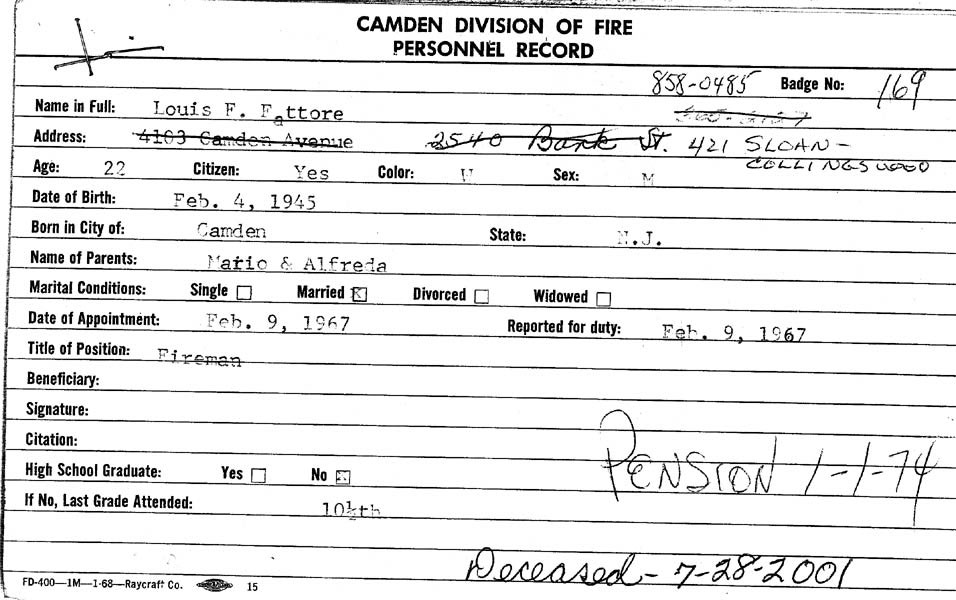 CAMDEN DIVISION OF FIRE
PERSONNEL RECORD
858-0485 Badge No: 169
Name in Full: Louis F. Fattore
Address: 4103 Camden Avenue 2540 Bank St. 421 SLOAN-
COLLINGSWOOD
Age: 22 Citizen: Yes Color: Sex: M
Date of Birth: Feb. 4, 1945
Born in City of: Camden State: N.J.
Name of Parents: Mario & Alfreda
Marital Conditions: Single Married Divorced Widowed
Date of Appointment: Feb. 9, 1967 Reported for duty: Feb. 9, 1967
Title of Position: Fireman
Beneficiary:
Signature:
Citation:
High School Graduate: Yes No
PENSION 1-1-74
If No, Last Grade Attended: 10½th
Deceased - 7-28-2001
FD-400—1M—1-68—Raycraft Co. 15